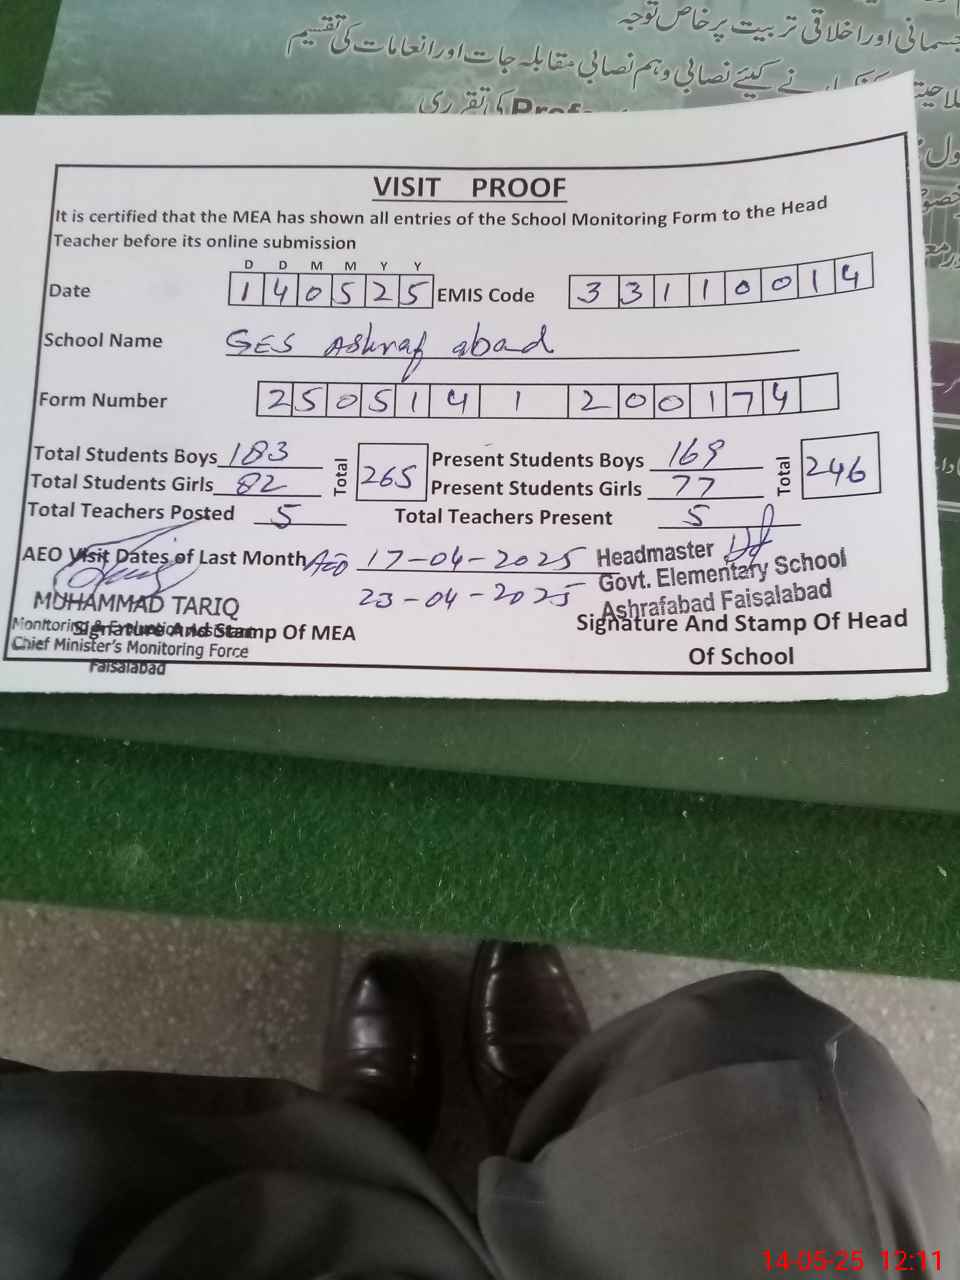 جسمانی اور اخلاقی تربیت پر خاص توجہ
کیلئے نصابی وہم نصابی مقابلہ جات اور انعامات کی تقسیم
کی تقرری
VISIT PROOF
It is certified that the MEA has shown all entries of the School Monitoring Form to the Head
Teacher before its online submission
D D M M Y Y
Date 1 4 0 5 2 5 EMIS Code 3 3 1 1 0 0 1 4
School Name GES Ashraf abad
Form Number 2 5 0 5 1 4 1 2 0 0 1 7 4
Total Students Boys 183 Total 265 Present Students Boys 169 Total 246
Total Students Girls 82 Present Students Girls 77
Total Teachers Posted 5 Total Teachers Present 5
AEO Visit Dates of Last Month AEO 17-04-2025 Headmaster
23-04-2025 Govt. Elementary School
Ashrafabad Faisalabad
MUHAMMAD TARIQ
Monitoring & Evaluation Assistant
Signature And Stamp Of MEA
Chief Minister's Monitoring Force
Faisalabad
Signature And Stamp Of Head
Of School
14-05-25 12:11